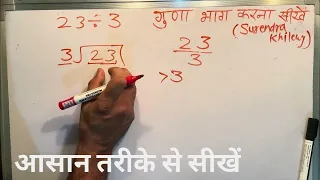 23÷3
गुणा भाग करना सीखें
(Surendra Khilery)
3√23(
23
3
>3
आसान तरीके से सीखें